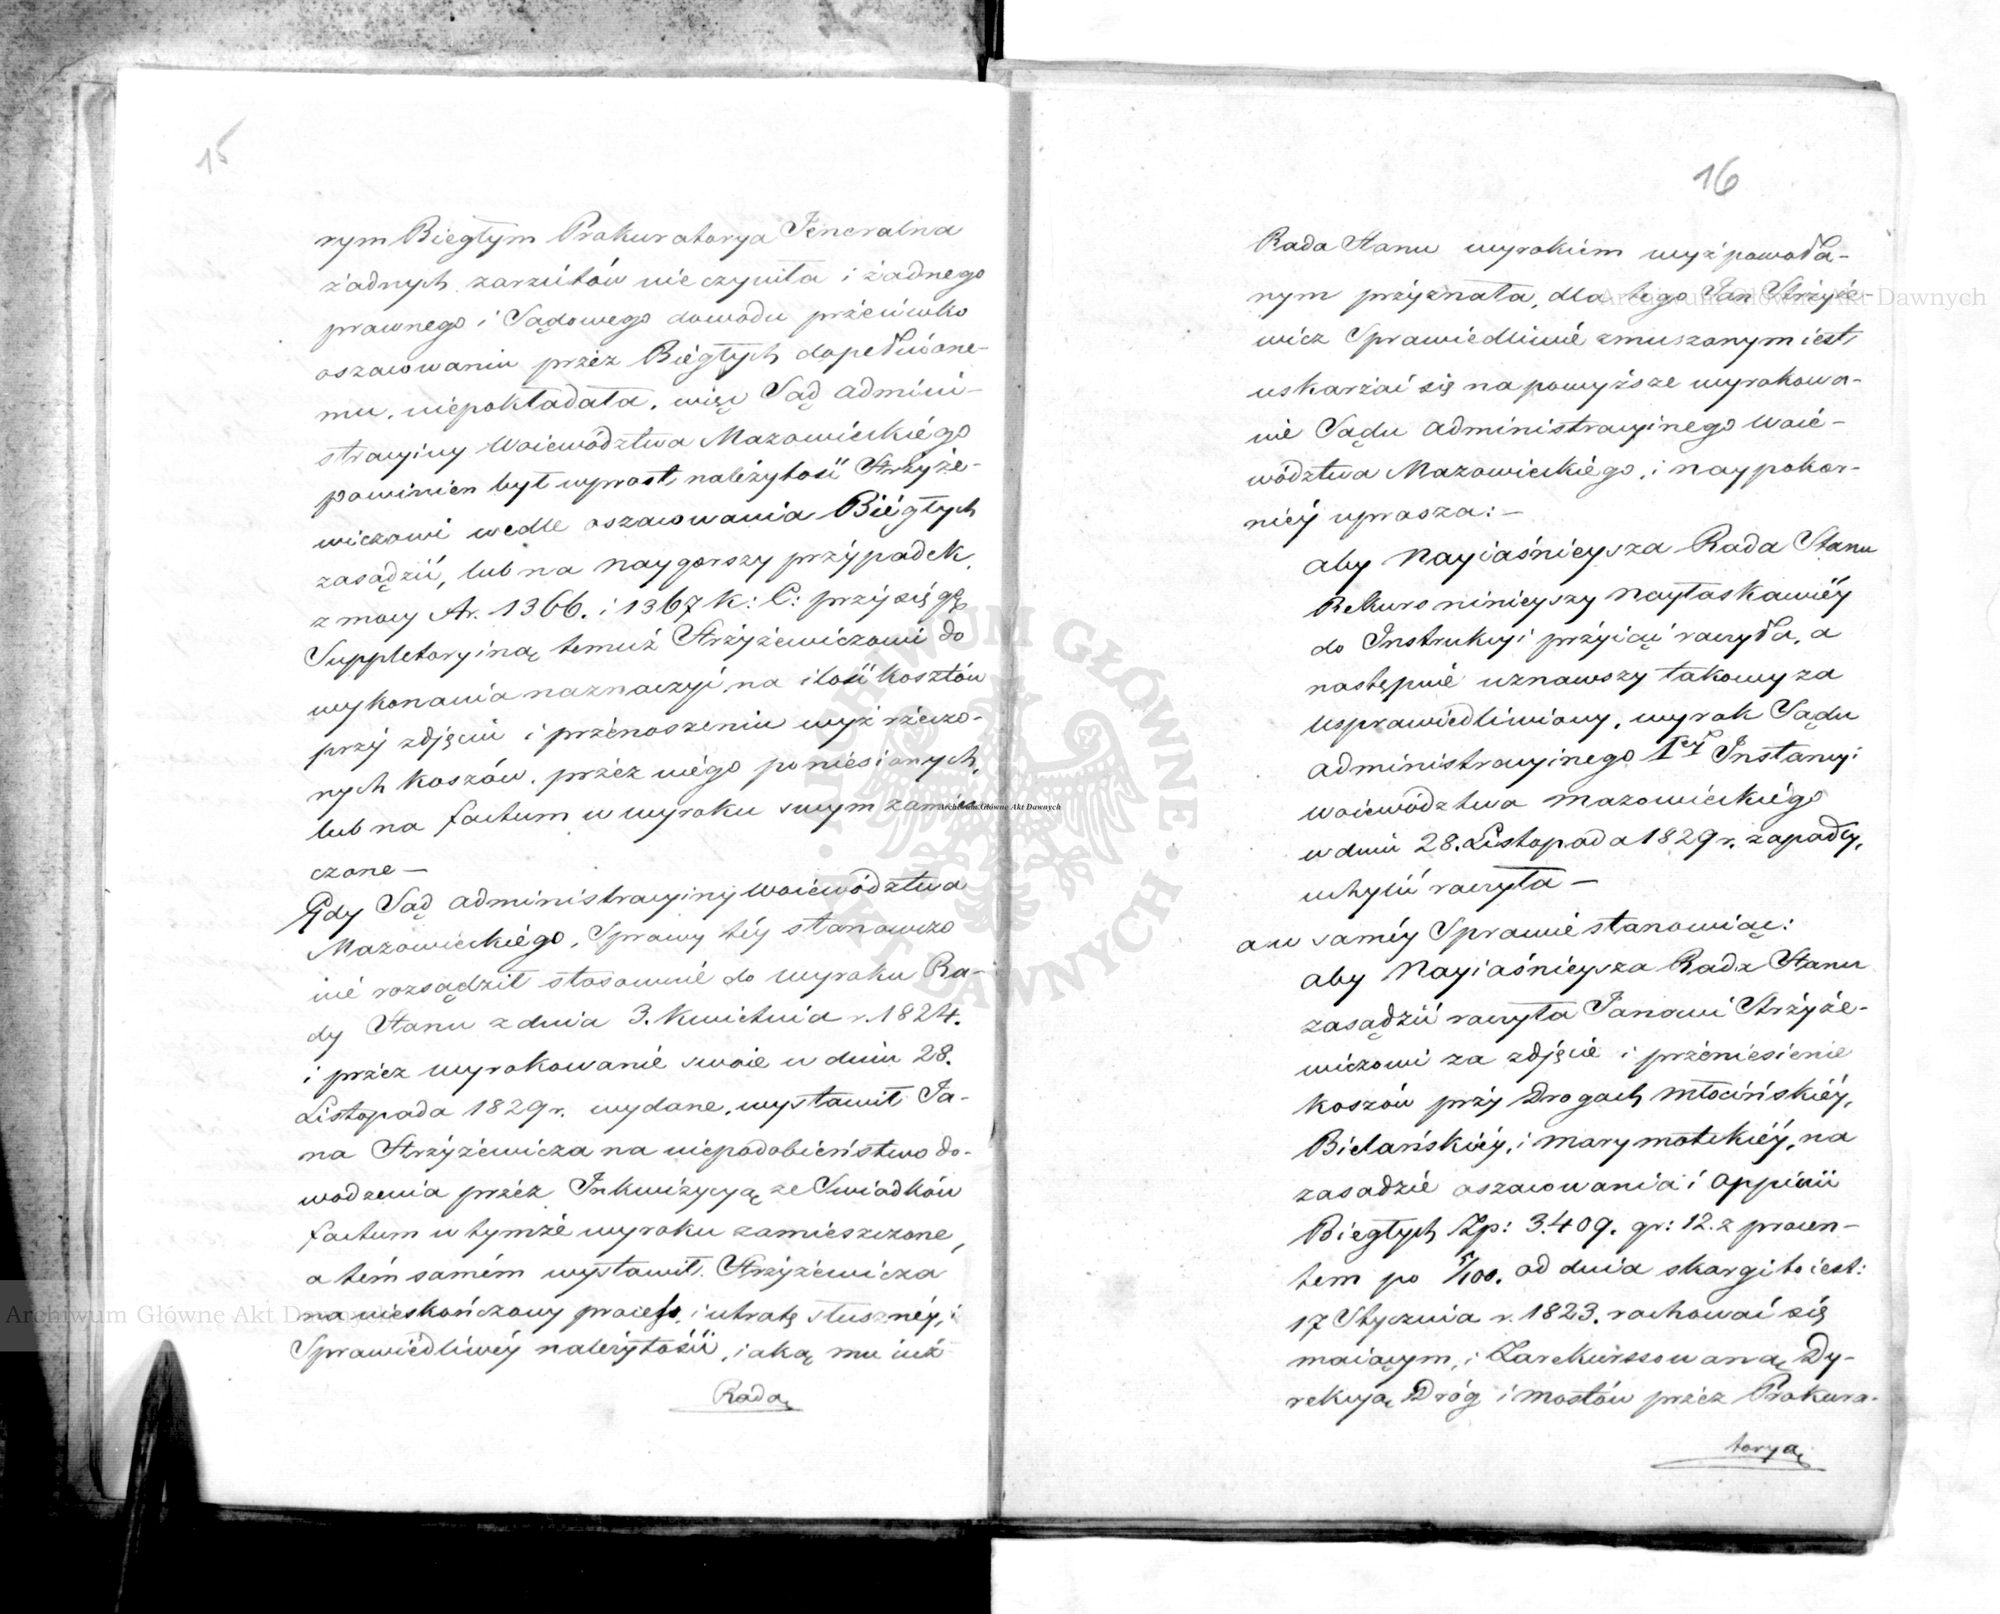 15
rym Biegłym Prokuratorya Jeneralna
żadnych zarzutów nie czyniła i żadnego
prawnego i Sądowego dowodu przeciwko
oszacowaniu przez Biegłych dopełnione-
mu, niepokładała, więc Sąd Admini-
stracyiny Woiewództwa Mazowieckiégo
powinien był wprost należytość Strzyże-
wiczowi wedle oszacowania Biégłych
zasądzić, lub na naygorszy przypadek,
z mocy Ar. 1366. i 1367 K: C: przysięgę
Suppletoryiną temuż Strzyżewiczowi do
wykonania naznaczyć, na ilość kosztów
przy zdjęciu i przenoszeniu wyż rzeczo-
nych koszów, przez niégo poniesionych,
lub na factum w wyroku swym zamiesz
czone —
Gdy Sąd Administracyiny Woiewództwa
Mazowieckiégo, Sprawy téy stanowczo
nié rozsądził stosownié do wyroku Ra-
dy Stanu z dnia 3. Kwietnia r. 1824.
i przez wyrokowanié swoie w dniu 28.
Listopada 1829 r. wydane, wystawił Ja-
na Strzyżewicza na niepodobieństwo do-
wodzenia przez Inkwizycyą ze Swiadków
factum w tymże wyroku zamieszczone,
a tém samém wystawił Strzyżewicza
na nieskończony process, i utratę słusznéy, i
Sprawiédliwéy należytości, iaką mu iuż
Rada
16
Rada Stanu wyrokiem wyż powoła-
nym przyznała, dla tego Jan Strzyże-
wicz Sprawiedliwié zmuszonym iest,
uskarżać się na powyższe wyrokowa-
nié Sądu Administracyinego Woié-
wództwa Mazowieckiégo, i naypokor-
niéy uprasza: —
aby Nayiaśnieysza Rada Stanu
Rekurs ninieyszy nayłaskawiéy
do Instrukcyi przyiąć raczyła, a
następnié uznawszy takowy za
usprawiedliwiony, wyrok Sądu
Administracyinego 1éy Instancyi
Woiewództwa Mazowieckiégo
w dniu 28. Listopada 1829 r. zapadły,
uchylić raczyła —
a w saméy Sprawié stanowiąc:
aby Nayiaśnieysza Rada Stanu
zasądzić raczyła Janowi Strzyże-
wiczowi za zdjęcié i przeniesienie
koszów przy Drogach Młocińskiéy,
Bielańskiéy, i Marymotskiéy, na
zasadzié oszacowania i Oppinii
Biegłych Zp: 3.409. gr: 12. z procen-
tem po 5/100. od dnia skargi to iest:
17 Stycznia r. 1823. rachować się
maiącym, i Zarekurssowaną Dy-
rekcyą Dróg i Mostów przez Prokura-
toryą
Archiwum Główne Akt Dawnych
Archiwum Główne Akt Dawnych
Archiwum Główne Akt Dawnych
ARCHIWUM GŁÓWNE · AKT DAWNYCH ·